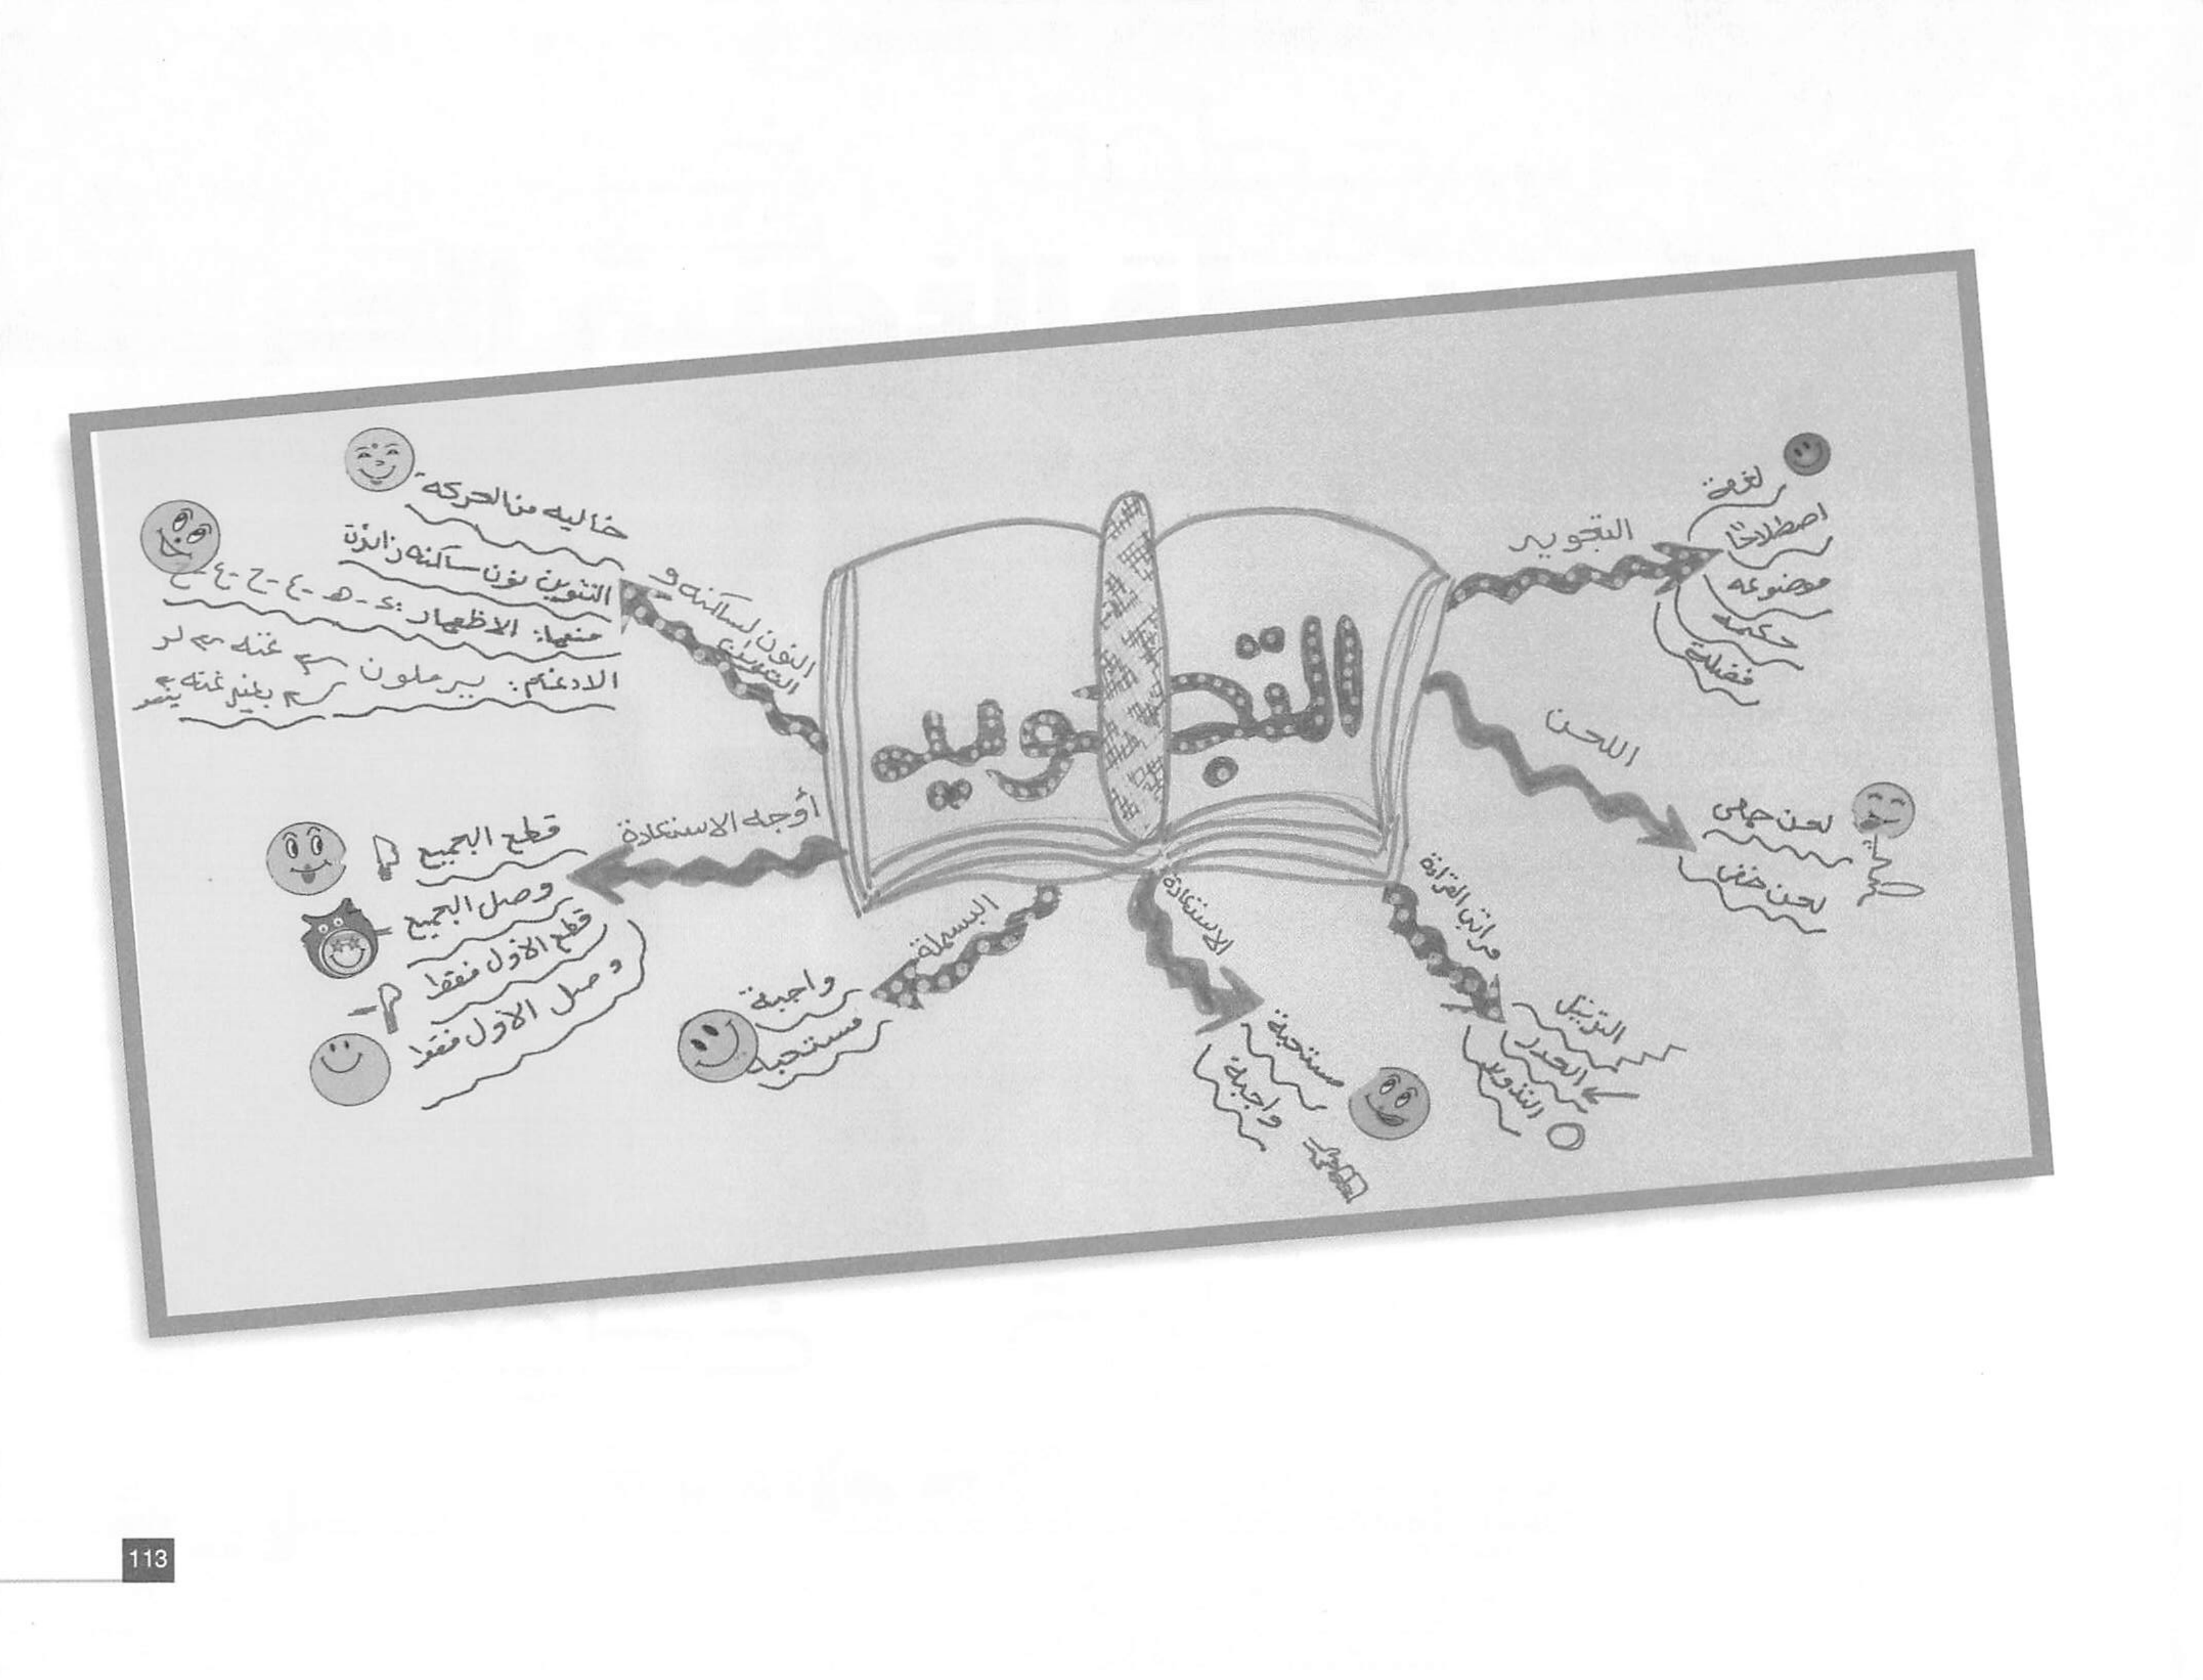 التجويد
التجويد
لغة
اصطلاحًا
موضوعه
حكمه
فضله
اللحن
لحن جلي
لحن خفي
مراتب القراءة
الترتيل
الحدر
التدوير
الاستعاذة
مستحبة
واجبة
البسملة
واجبة
مستحبة
أوجه الاستعاذة
قطع الجميع
وصل الجميع
قطع الأول فقط
وصل الأول فقط
النون لساكنه و
التنوين
خاليه من الحركة
التنوين نون ساكنه زائدة
منهما: الاظهار: ء - هـ - ع - ح - غ - خ
الادغام: يرملون
غنه
بغير غنه
113